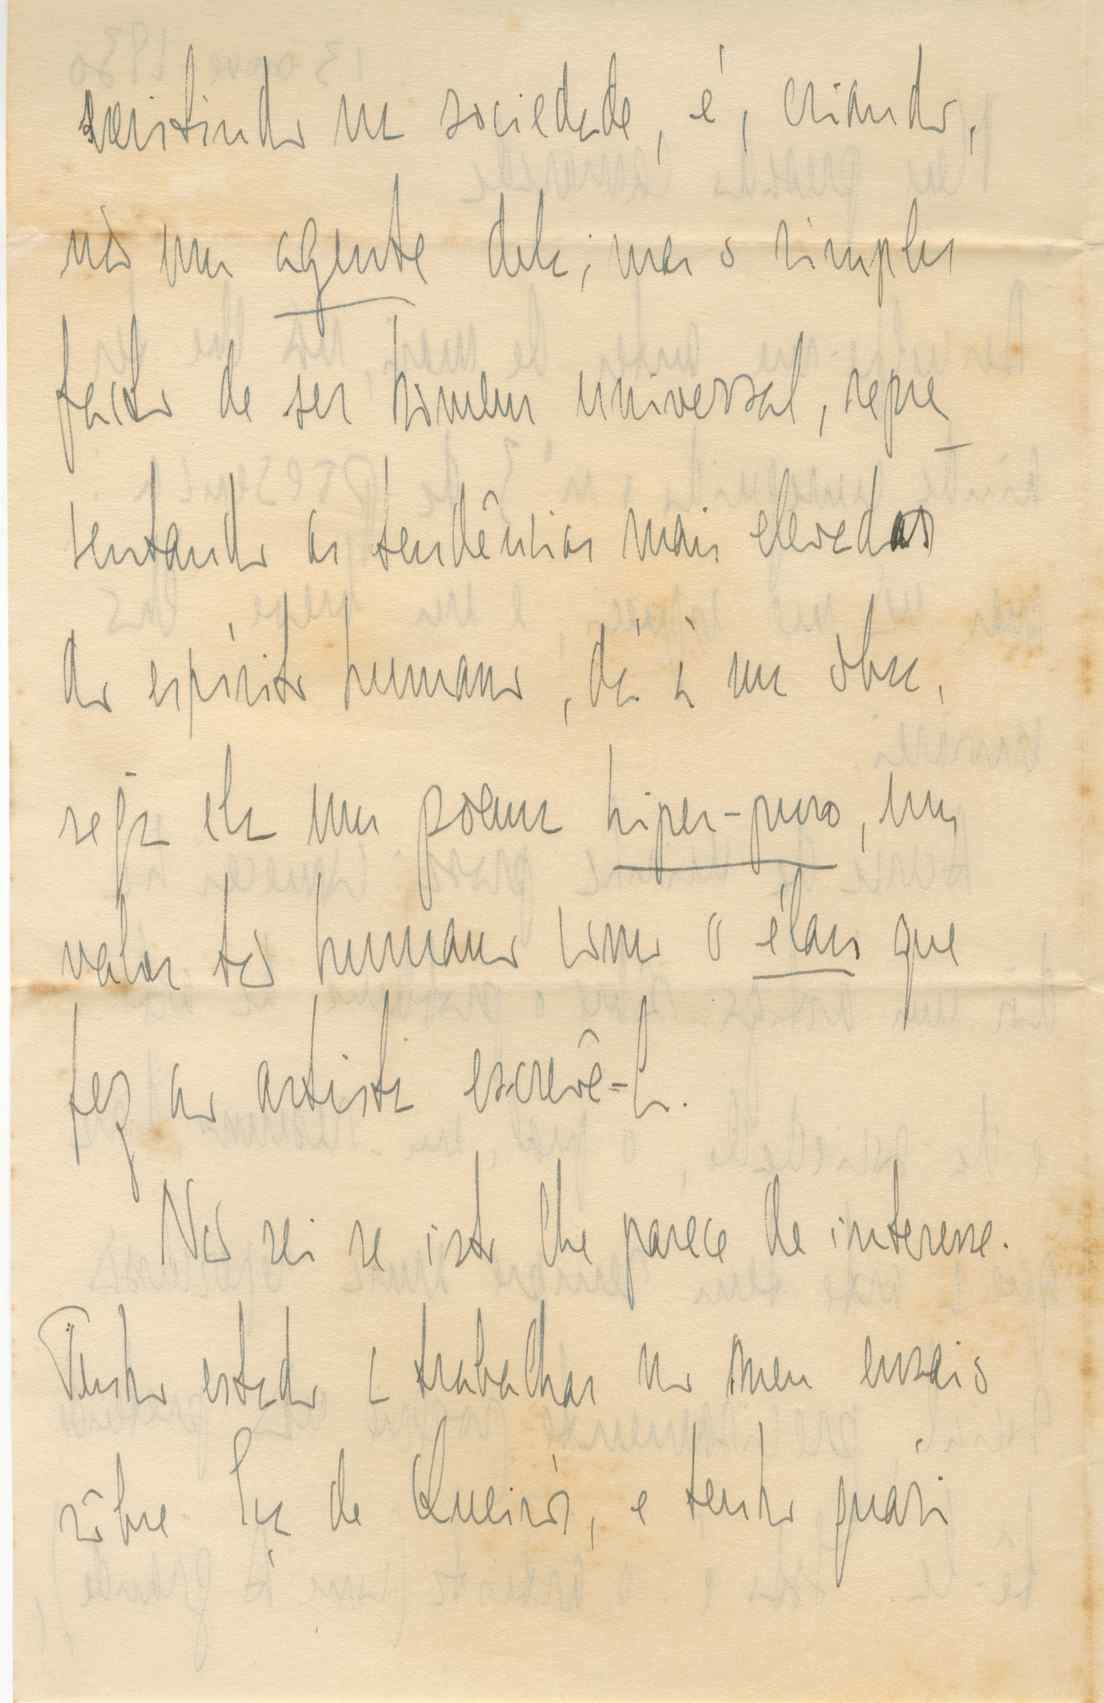 existindo na sociedade, é, criando,
não um agente dela; mas o simples
facto de ser homem universal, repre-
sentando as tendências mais elevadas
do espírito humano, dá à sua obra,
seja ela um poema hiper-puro, um
valor tão humano como o élan que
fez ao artista escrevê-la.
Não sei se isto lhe parece de interesse.
Tenho estado a trabalhar no meu ensaio
sôbre Eça de Queirós, e tenho quási